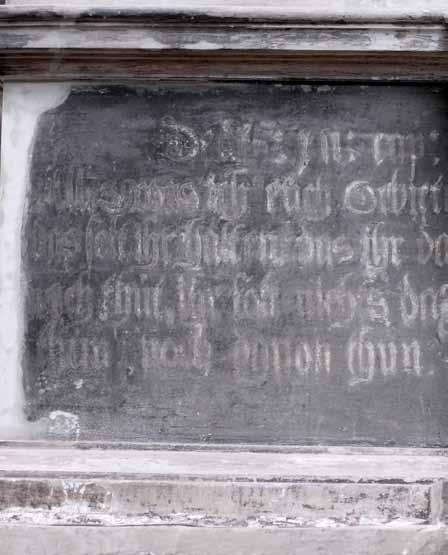 cap:
Alles was ich euch Gebiet
das solt ihr halten das ihr da
nach thut, Ihr solt nichts da
thun noch davon thun.